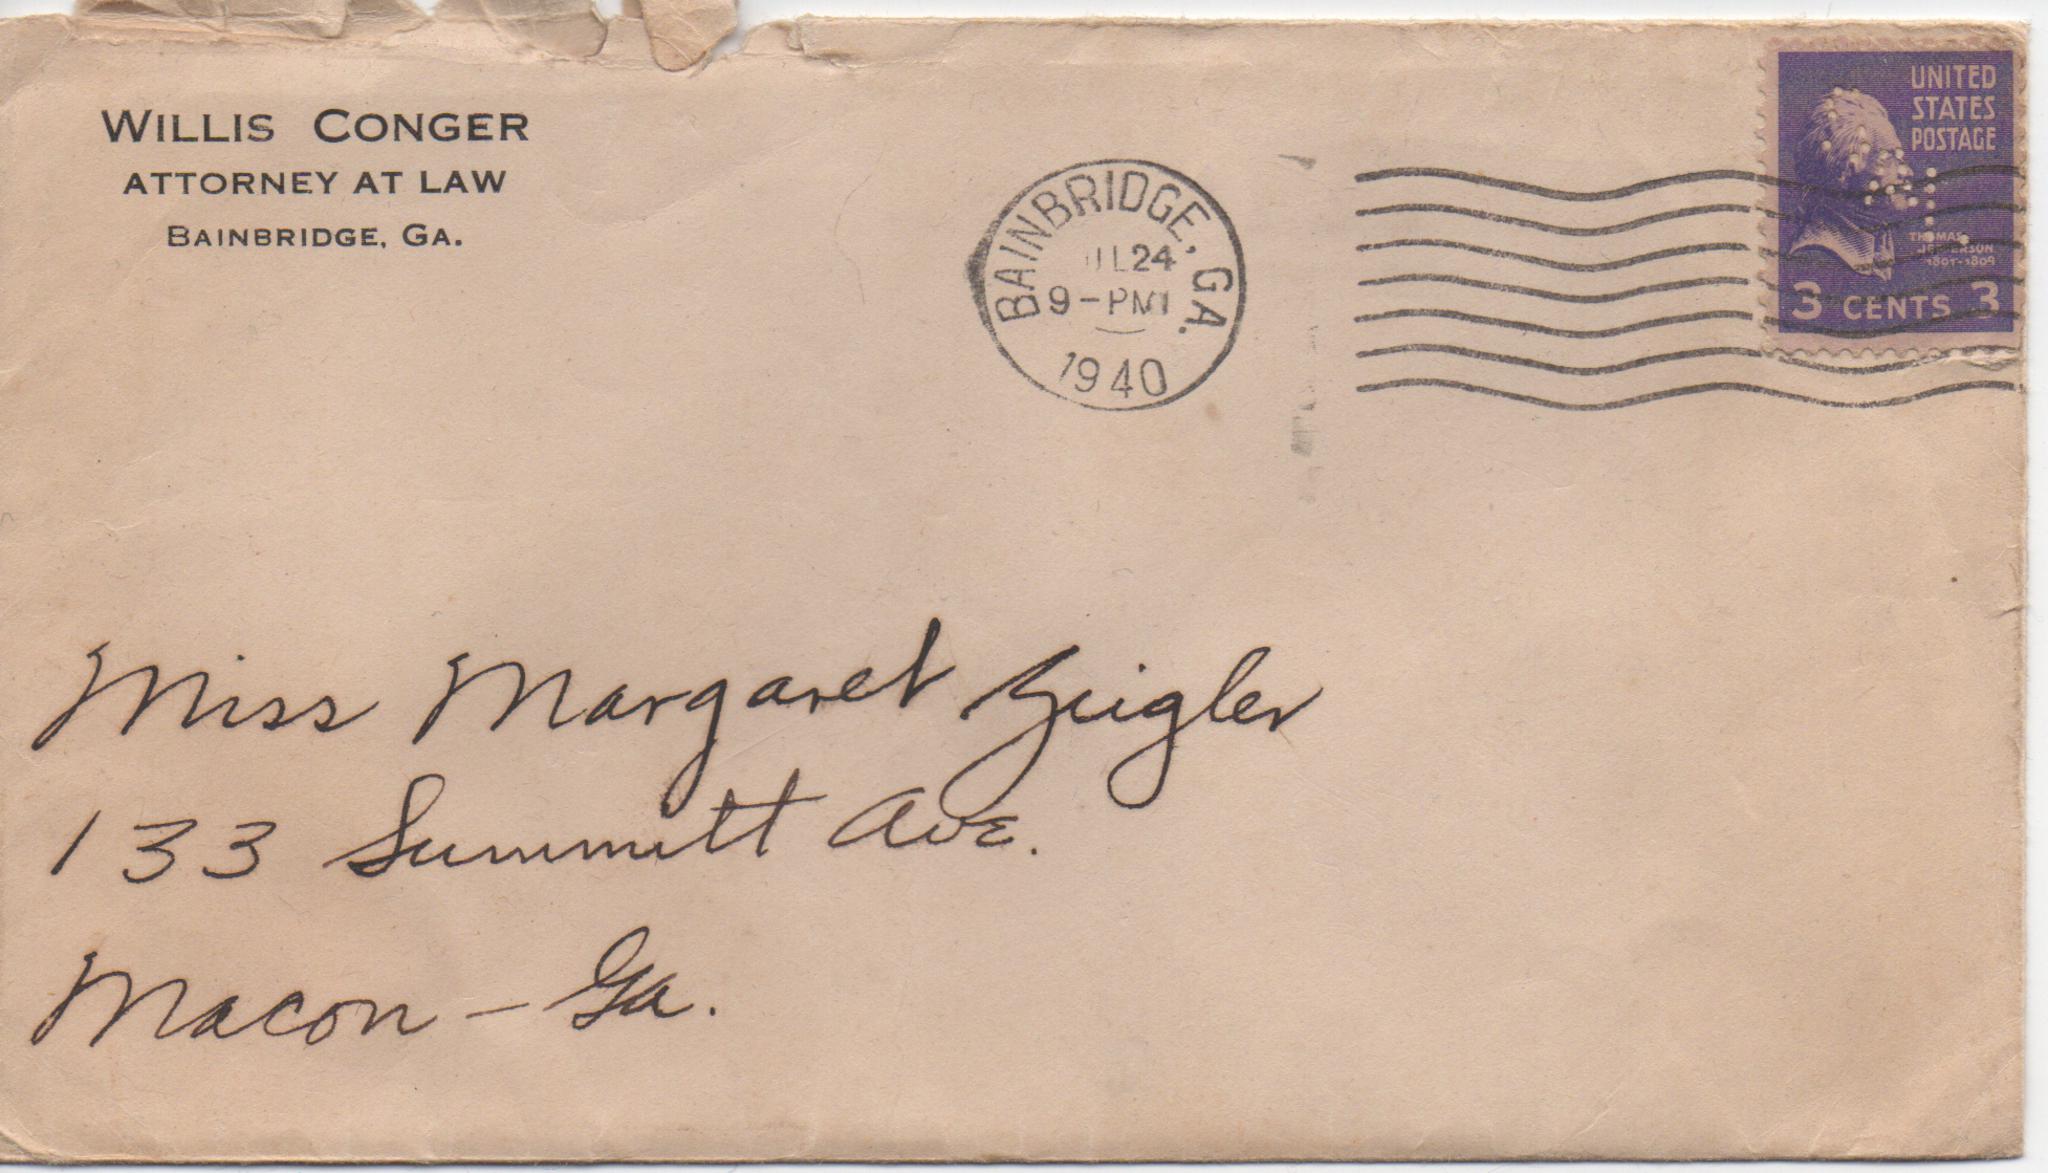 WILLIS CONGER
ATTORNEY AT LAW
BAINBRIDGE, GA.
BAINBRIDGE, GA.
UL24
9-PM
1940
UNITED
STATES
POSTAGE
THOMAS
JEFFERSON
1801-1809
3 CENTS 3
Miss Margaret Zeigler
133 Summitt Ave.
Macon - Ga.